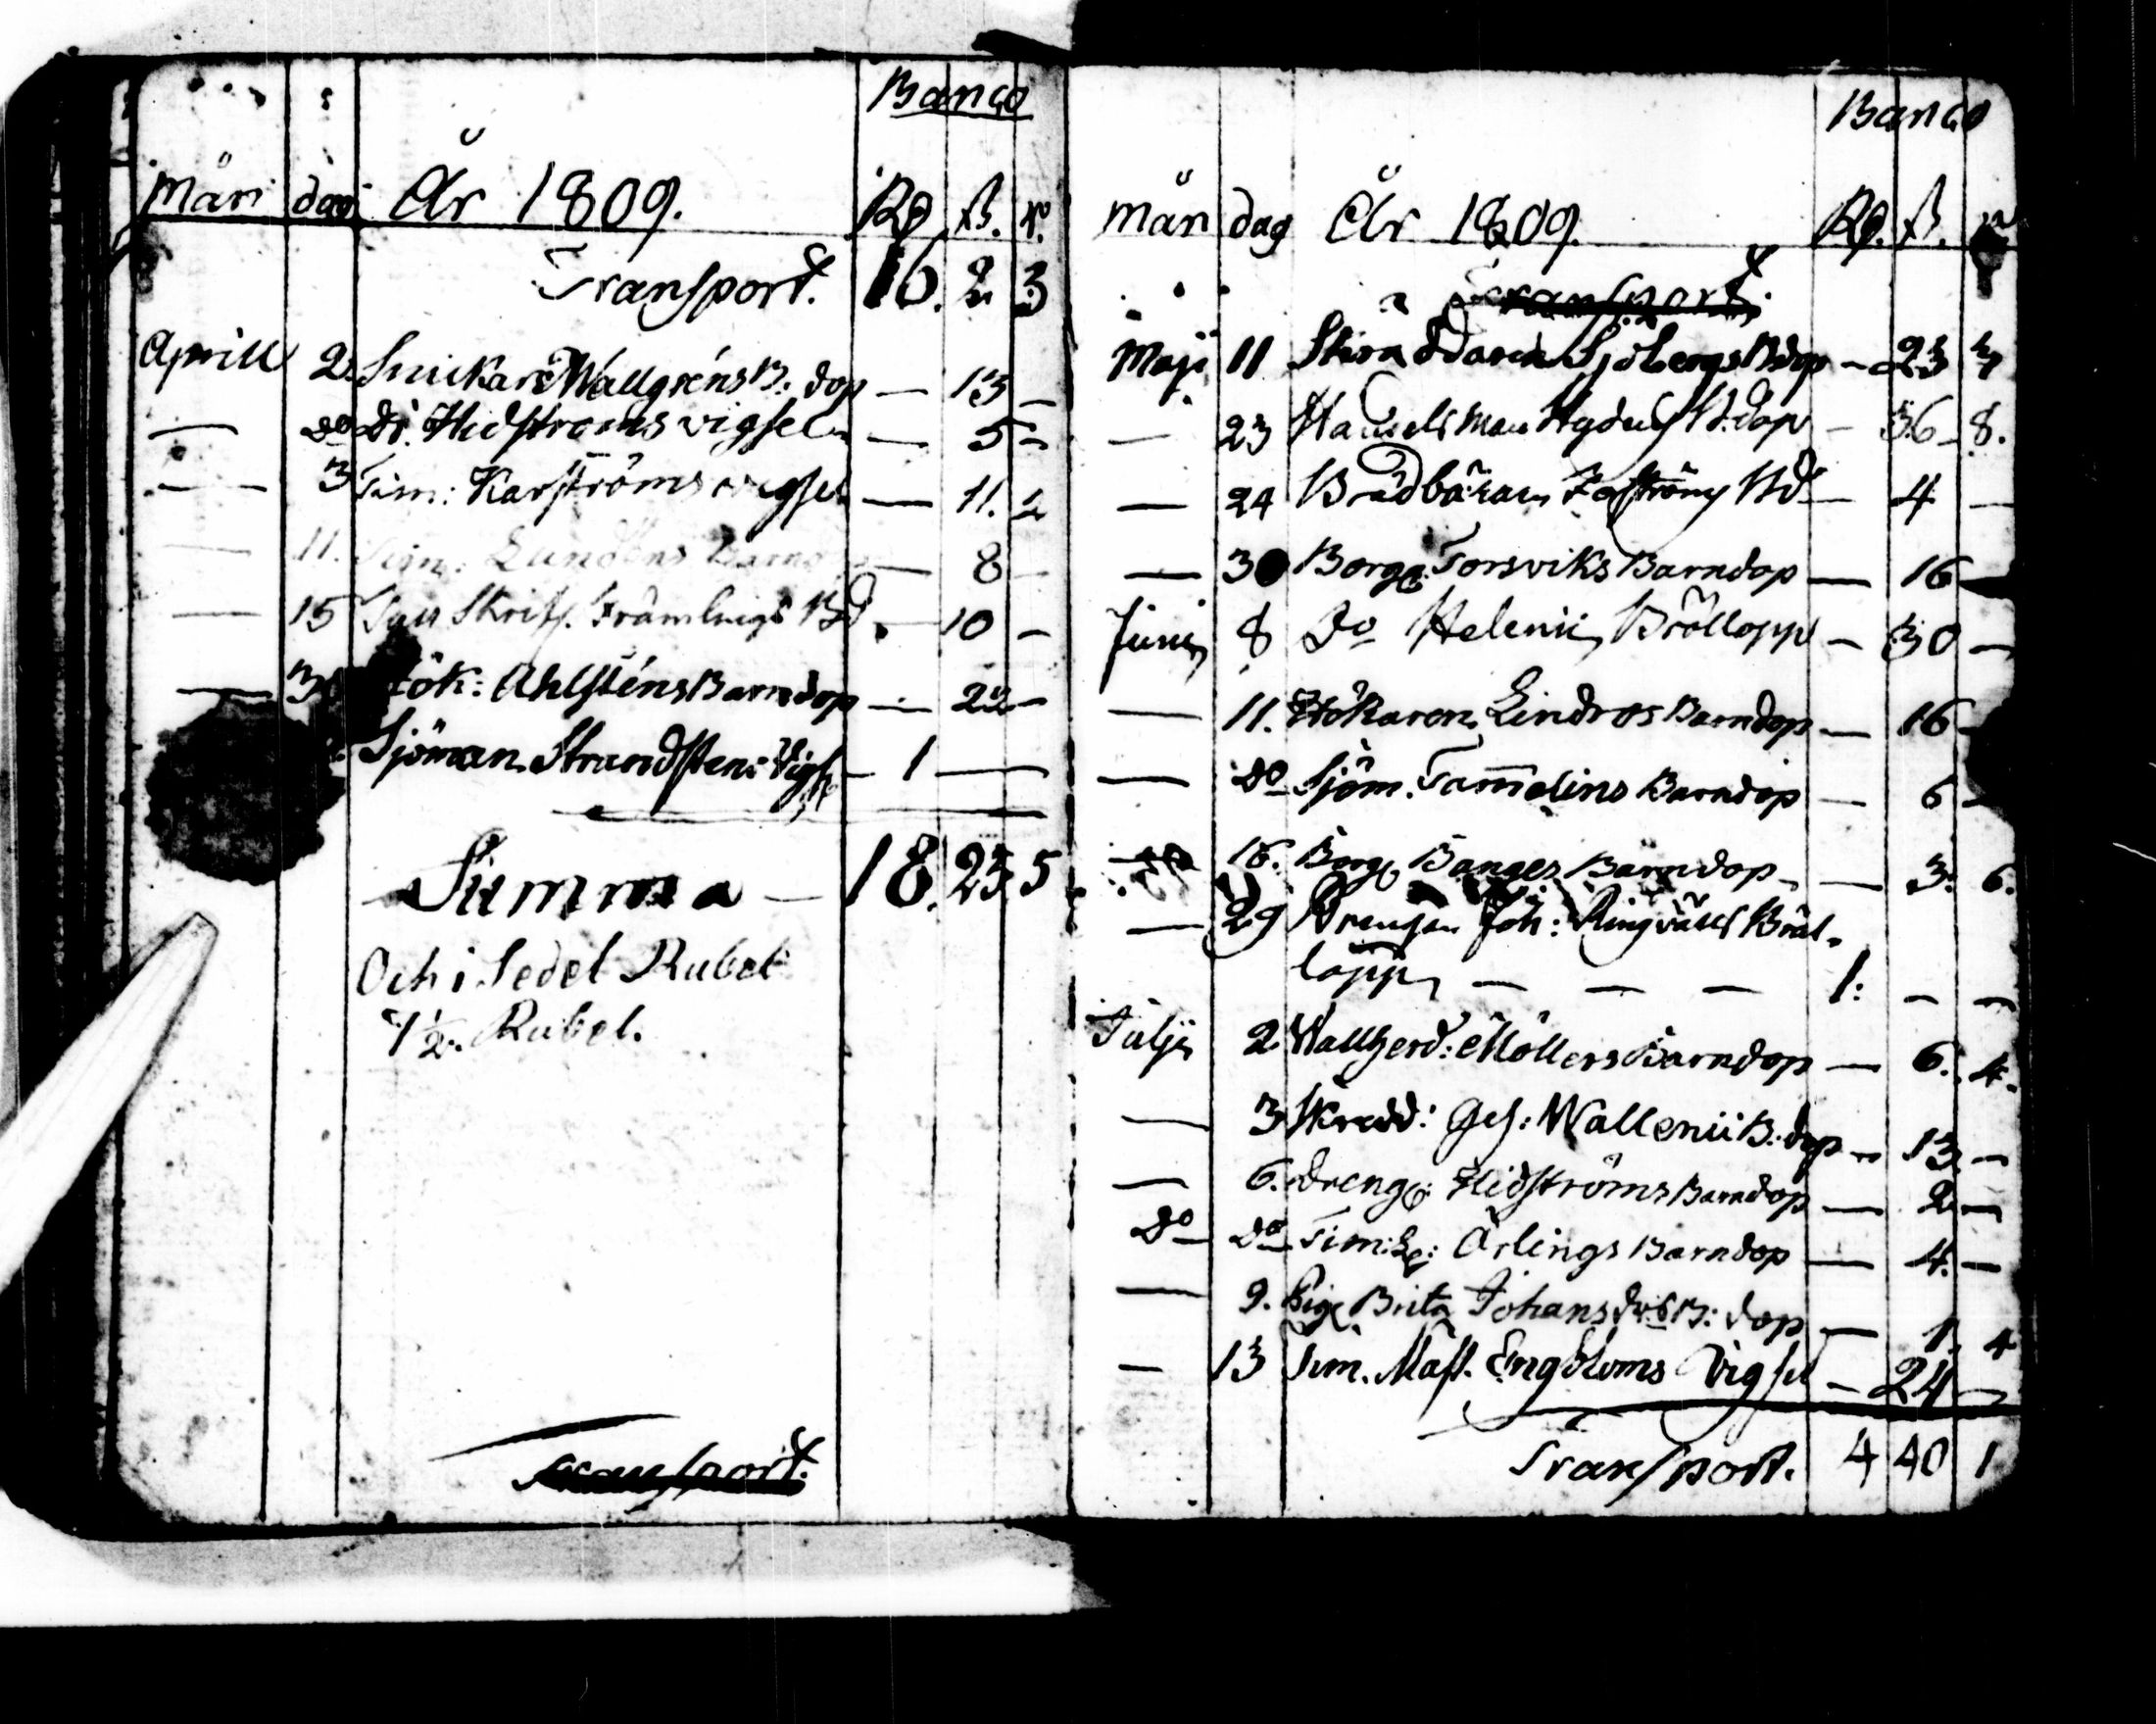 Banco
Mån dag År 1809. Rd ß. r.
Transport. 16. 2 3
Aprill 2. Snickare Wallgréns B: dop — 13 —
— do Dr. Hidströms vigsel — 5 —
— 3 Tim: Karströms vigsel — 11. 2
— 11. Tim: Lundéns Barnd — 8 —
— 15 Främlings Bd — 10 —
— 30 Hök: Ahlsténs Barndop — 22 —
Sjöman Strandstens Vigs — 1 —
Summa — 18. 23 5
Och i Sedel Rubel
7 ½. Rubel.
Transport.
Banco
Mån dag År 1809. Rd. ß. r
Transport.
Maji 11 Skräddaren Sjöbergs Bdop — 23 3
— 23 Handelsman Nydens B. dop — 36 8.
— 24 Brädbäraren Bd — 4 —
— 30 Borg: Torsviks Barndop — 16 —
Junij 8 Do Helenii Bröllopp — 30 —
— 11. Hökaren Lindros Barndop — 16 —
— do Sjöm. Tammelins Barndop — 6 —
16. Borg Banges Barndop — 3. 6.
— 29 Drengen Joh: Ringvalls Bröl-
lopp — — — 1: — —
Julji 2. Wallgerd: Möllers Barndop — 6. 4.
— 3 Skredd: Ges: Wallenii B: dop — 13 —
— 6. Dreng: Hidströms Barndop — 2 —
Do do Tim: Ge: Ärlings Barndop — 4. —
— 9. Pig: Brita Johans dr B: dop — 1. 4
— 13 Tim. Mäst. Engbloms Vigsel — 24 —
Transport. 4 40 1